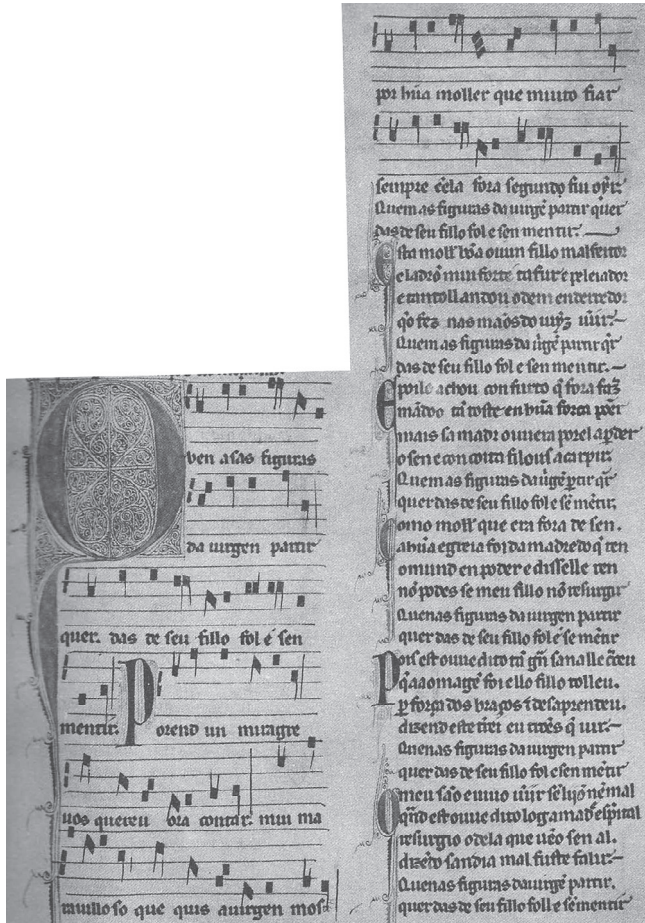 Quen asas figuras
da uirgen partir
quer. das de seu fillo fol é sen
mentir. Porend un miragre
uos quereu ora contar. mui ma
rauilloso que quis auirgen mos
por hũa moller que muito fiar
sempre ẽela fora segundo fiu oyir
Quem as figuras da uirgẽ partir quer
das de seu fillo fol e sen mentir.
Esta moll' bõa ouun fillo malfeitor
e ladrõ mui forte tafur e peleiador
e tantoll andou o dem en derredor
q̇o fez nas mãos do uiyz uĩir.
Quem as figuras da ũgẽ partir q̇r
das de seu fillo fol e sen mentir.
E poilo achou con furto q̇ fora faz
mãdoo tã toste en hũa forca põer
mais sa madr ouuera por el a ꝑder
o sen e con coita fillous a carpir.
Quem as figuras da ũgẽ ꝑtir q̇r
quer das de seu fillo fol e sẽ mẽtir.
Como moll' que era fora de sen.
a hũa egreia foi da madre do q̇ ten
o mund en poder e disselle ten
nõ podes se meu fillo nõ resurgir
Quenas figuras da uirgen partir
quer das de seu fillo fol e sẽ mẽtir
Pois est ouue dito tã gñ sanalle creceu
q̇ aa omagẽ foi e llo fillo tolleu.
ꝑ força dos braços e desaprendeu.
dizend este terrei eu trões q̇ uir.
Quenas figuras da uirgen partir
quer das de seu fillo fol e sen mẽtir
O meu são e uiuo uĩir sẽ lijõ nẽ mal
q̇nd est ouue dito log a madr̃ espirital
resurgio o dela que uẽo sen al.
dizẽdo sandia mal fuste falir.
Quenas figuras da uirgẽ partir.
quer das de seu fillo foll e sẽ mentir